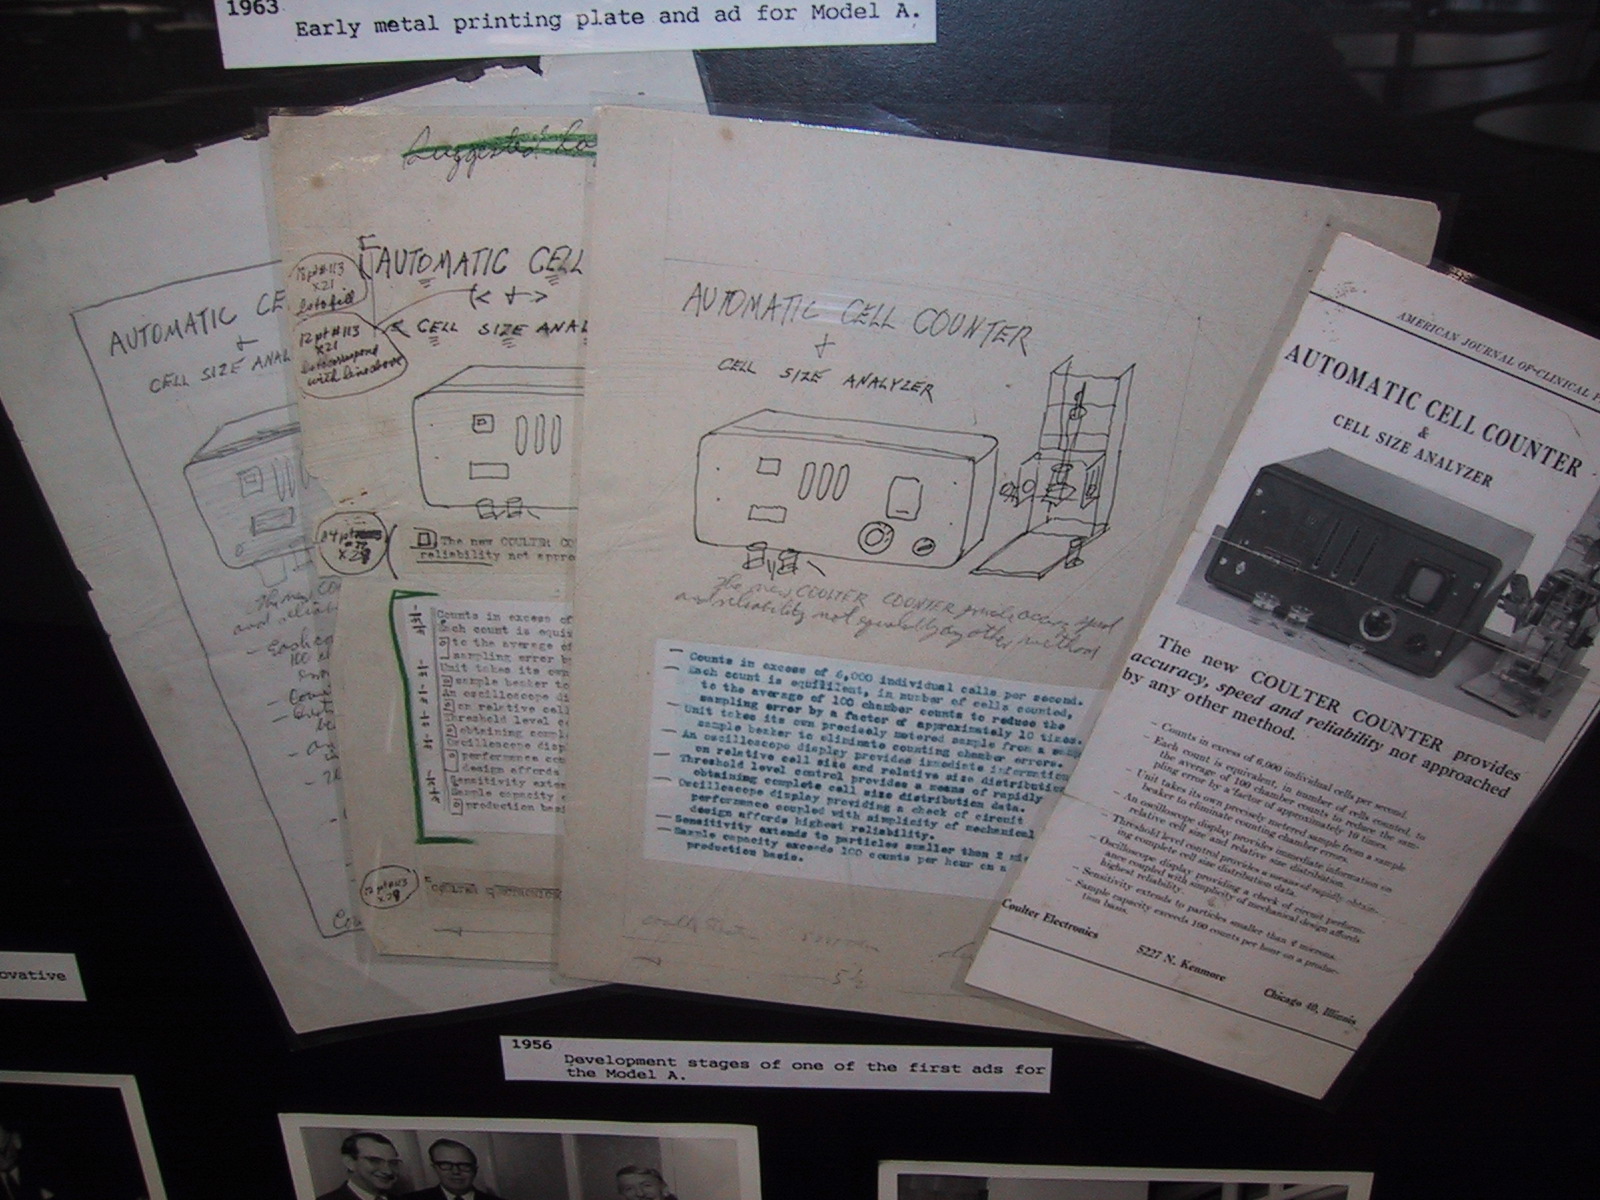 1963
Early metal printing plate and ad for Model A.
AUTOMATIC CE
+
CELL SIZE ANAL
Suggested La
18 pt #113
x21
12 pt #113
x21
with line above
AUTOMATIC CELL
(< + >
CELL SIZE ANAL
The new COULTER CO
reliability not appro
Counts in excess of
Each count is equiv
to the average of
sampling error by
Unit takes its own
sample beaker to
An oscilloscope di
on relative cell
Threshold level co
obtaining compl
Oscilloscope disp
performance cou
design affords
Sensitivity exten
Sample capacity e
production basi
12 pt #113
AUTOMATIC CELL COUNTER
+
CELL SIZE ANALYZER
The new COULTER COUNTER speed
and reliability not by any other method
— Counts in excess of 6,000 individual cells per second.
— Each count is equivilent, in number of cells counted,
to the average of 100 chamber counts to reduce the
sampling error by a factor of approximately 10 times.
— Unit takes its own precisely metered sample from a samp
sample beaker to eliminate counting chamber errors.
— An oscilloscope display provides immediate information
on relative cell size and relative size distribution
— Threshold level control provides a means of rapidly
obtaining complete cell size distribution data.
— Oscilloscope display providing a check of circuit
performance coupled with simplicity of mechanical
design affords highest reliability.
— Sensitivity extends to particles smaller than 2 mic
— Sample capacity exceeds 100 counts per hour on a
production basis.
5½
AMERICAN JOURNAL OF CLINICAL P
AUTOMATIC CELL COUNTER
&
CELL SIZE ANALYZER
The new COULTER COUNTER provides
accuracy, speed and reliability not approached
by any other method.
– Counts in excess of 6,000 individual cells per second.
– Each count is equivalent, in number of cells counted, to
the average of 100 chamber counts to reduce the sam-
pling error by a factor of approximately 10 times.
– Unit takes its own precisely metered sample from a sample
beaker to eliminate counting chamber errors.
– An oscilloscope display provides immediate information on
relative cell size and relative size distribution.
– Threshold level control provides a means of rapidly obtain-
ing complete cell size distribution data.
– Oscilloscope display providing a check of circuit perform-
ance coupled with simplicity of mechanical design affords
highest reliability.
– Sensitivity extends to particles smaller than microns.
– Sample capacity exceeds 100 counts per hour on a produc-
tion basis.
Coulter Electronics
5227 N. Kenmore
Chicago 40, Illinois
ovative
1956
Development stages of one of the first ads for
the Model A.